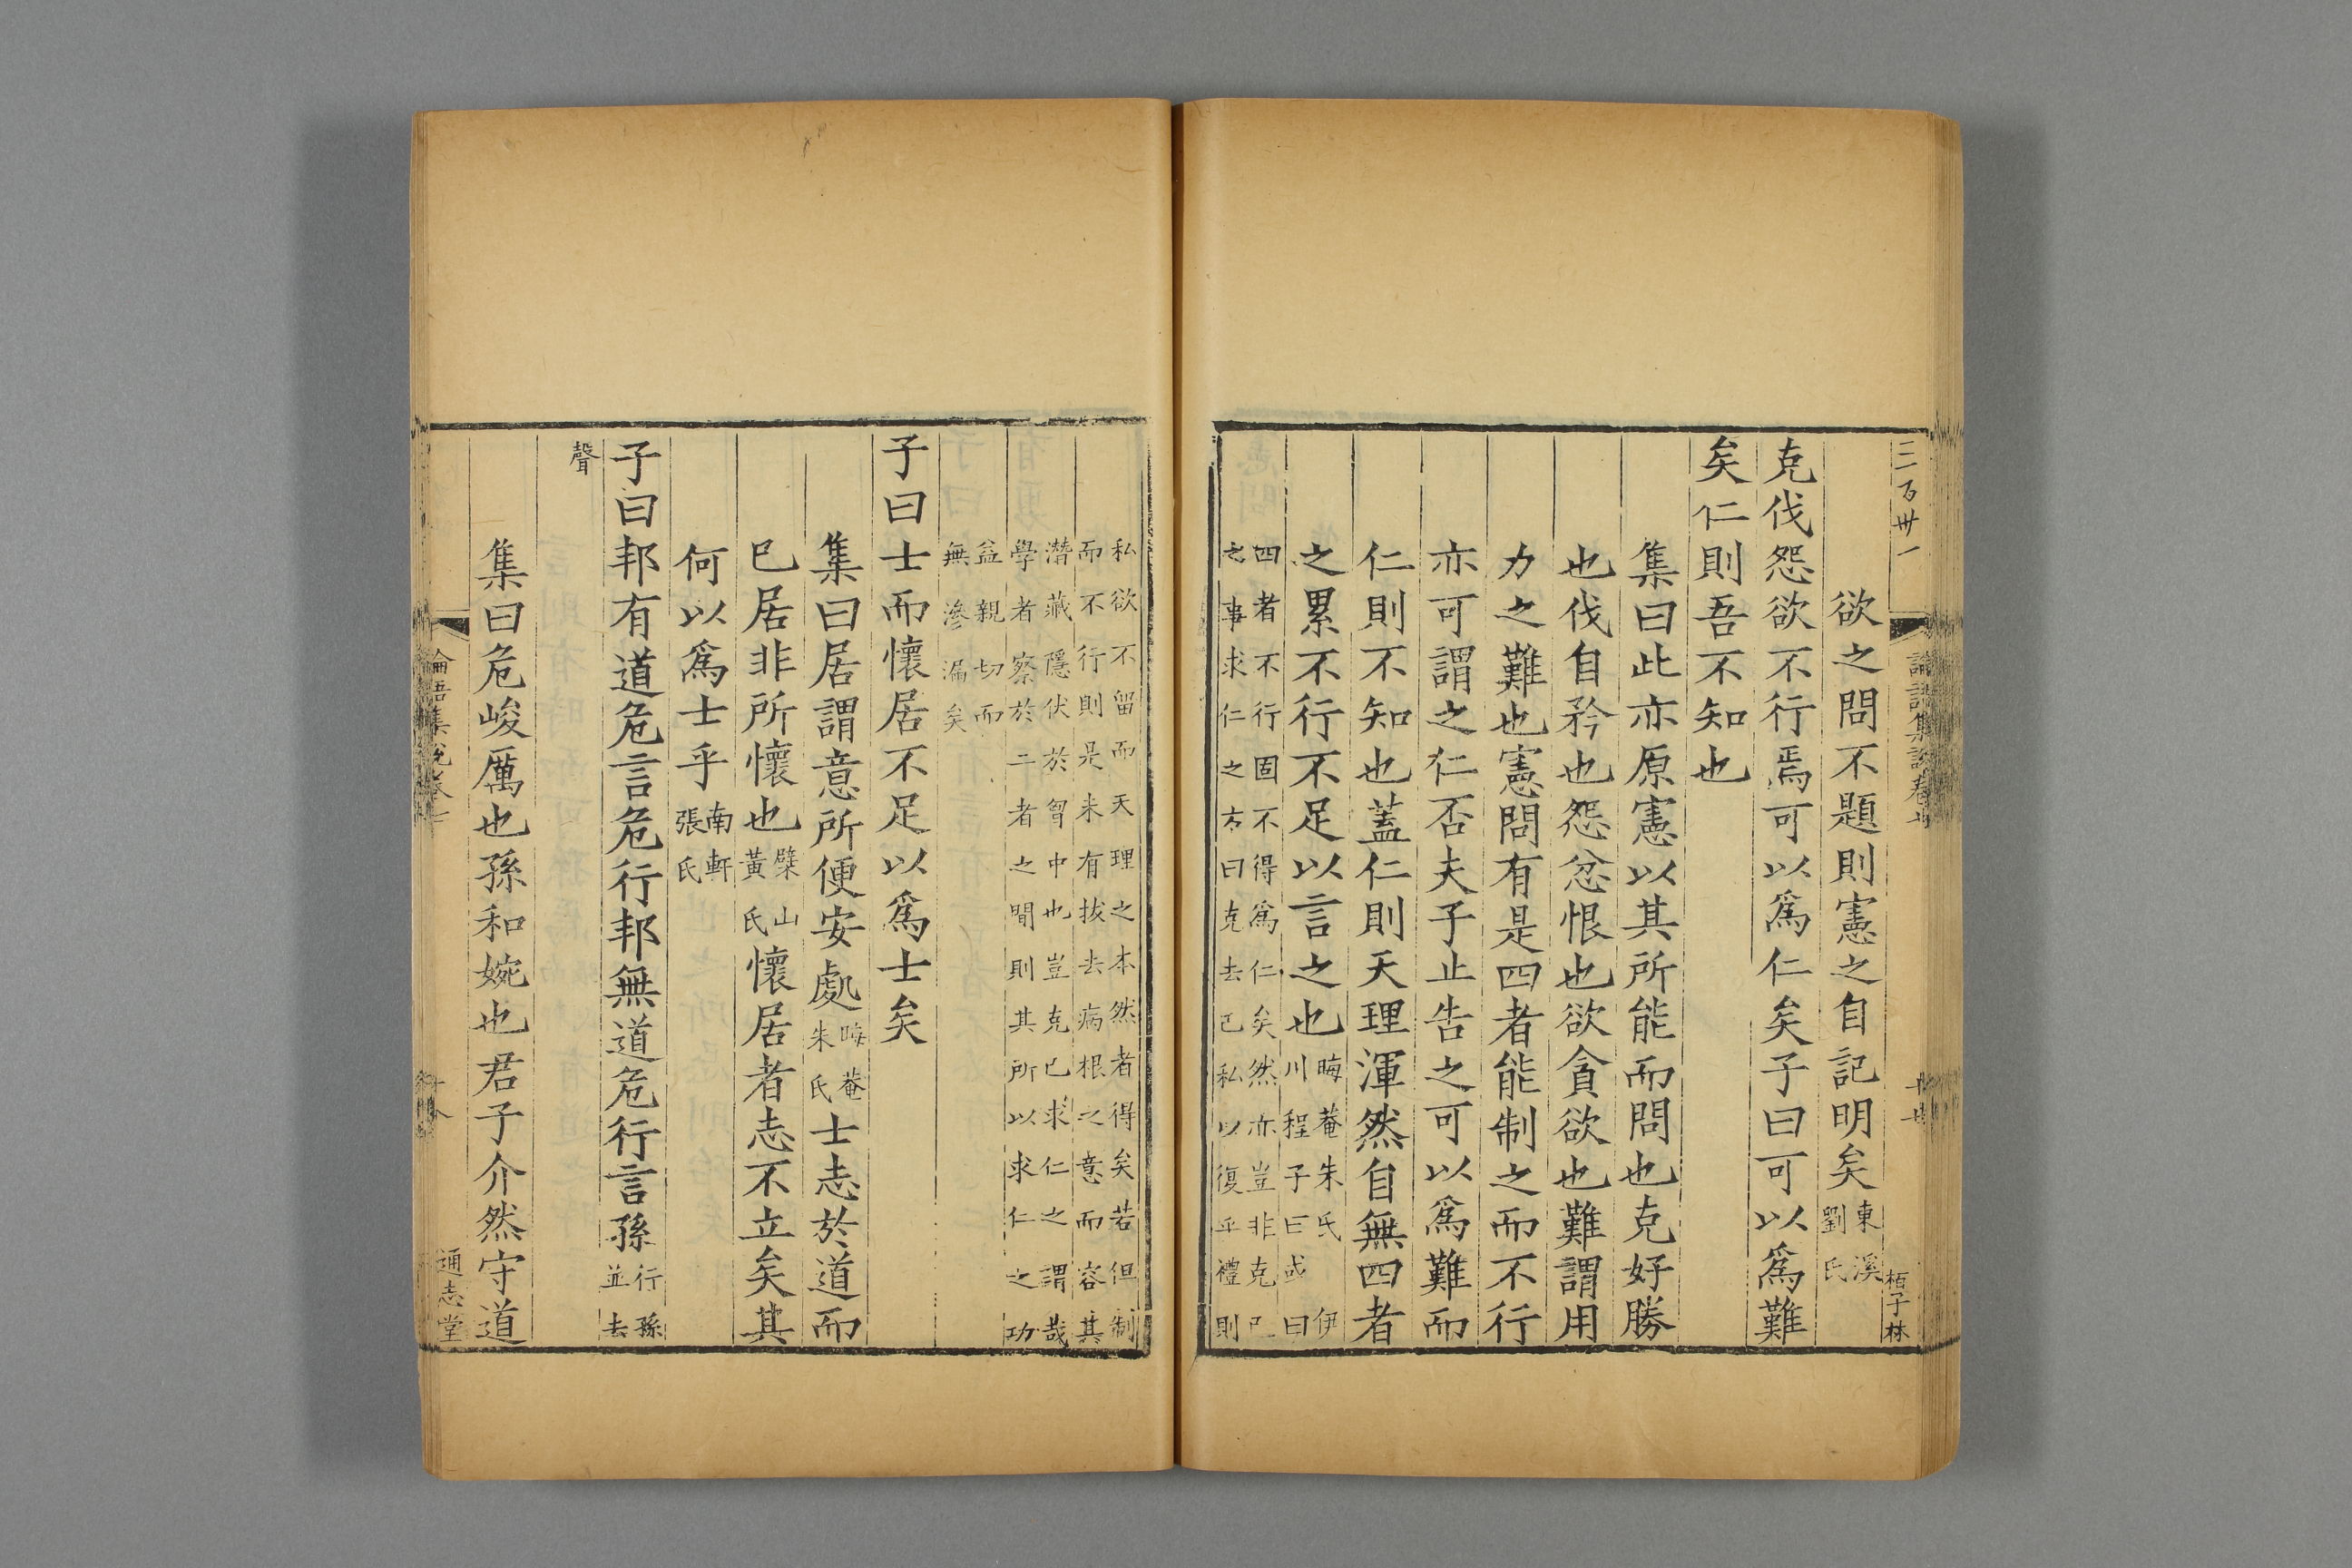 三百卅一
論語集說卷七
十七
栢子林
欲之問不題則憲之自記明矣東溪劉氏
克伐怨欲不行焉可以爲仁矣子曰可以爲難
矣仁則吾不知也
集曰此亦原憲以其所能而問也克好勝
也伐自矜也怨忿恨也欲貪欲也難謂用
力之難也憲問有是四者能制之而不行
亦可謂之仁否夫子止告之可以爲難而
仁則不知也蓋仁則天理渾然自無四者
之累不行不足以言之也晦菴朱氏 伊
川程子曰或曰
四者不行固不得爲仁矣然亦豈非克己
之事求仁之方曰克去己私以復乎禮則
私欲不留而天理之本然者得矣若但制
而不行則是未有拔去病根之意而容其
潛藏隱伏於胷中也豈克己求仁之謂哉
學者察於二者之間則其所以求仁之功
益親切而
無滲漏矣
子曰士而懷居不足以爲士矣
集曰居謂意所便安處晦菴朱氏士志於道而
已居非所懷也檗山黃氏懷居者志不立矣其
何以爲士乎南軒張氏
子曰邦有道危言危行邦無道危行言孫行孫並去
聲
集曰危峻厲也孫和婉也君子介然守道
論語集說卷七
十八
通志堂